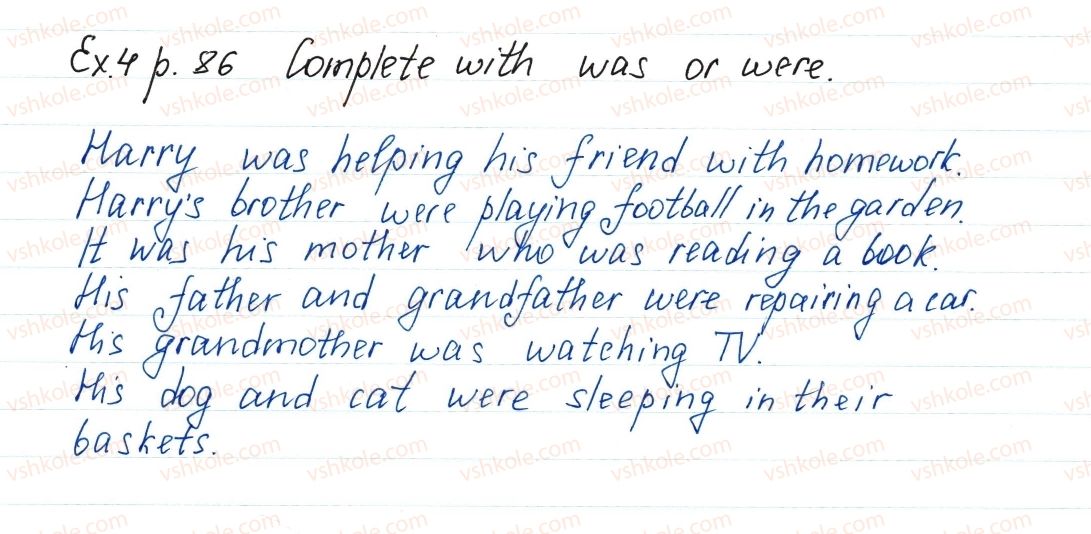 Ex.4 p. 86 Complete with was or were.
Harry was helping his friend with homework.
Harry's brother were playing football in the garden.
It was his mother who was reading a book.
His father and grandfather were repairing a car.
His grandmother was watching TV.
His dog and cat were sleeping in their
baskets.